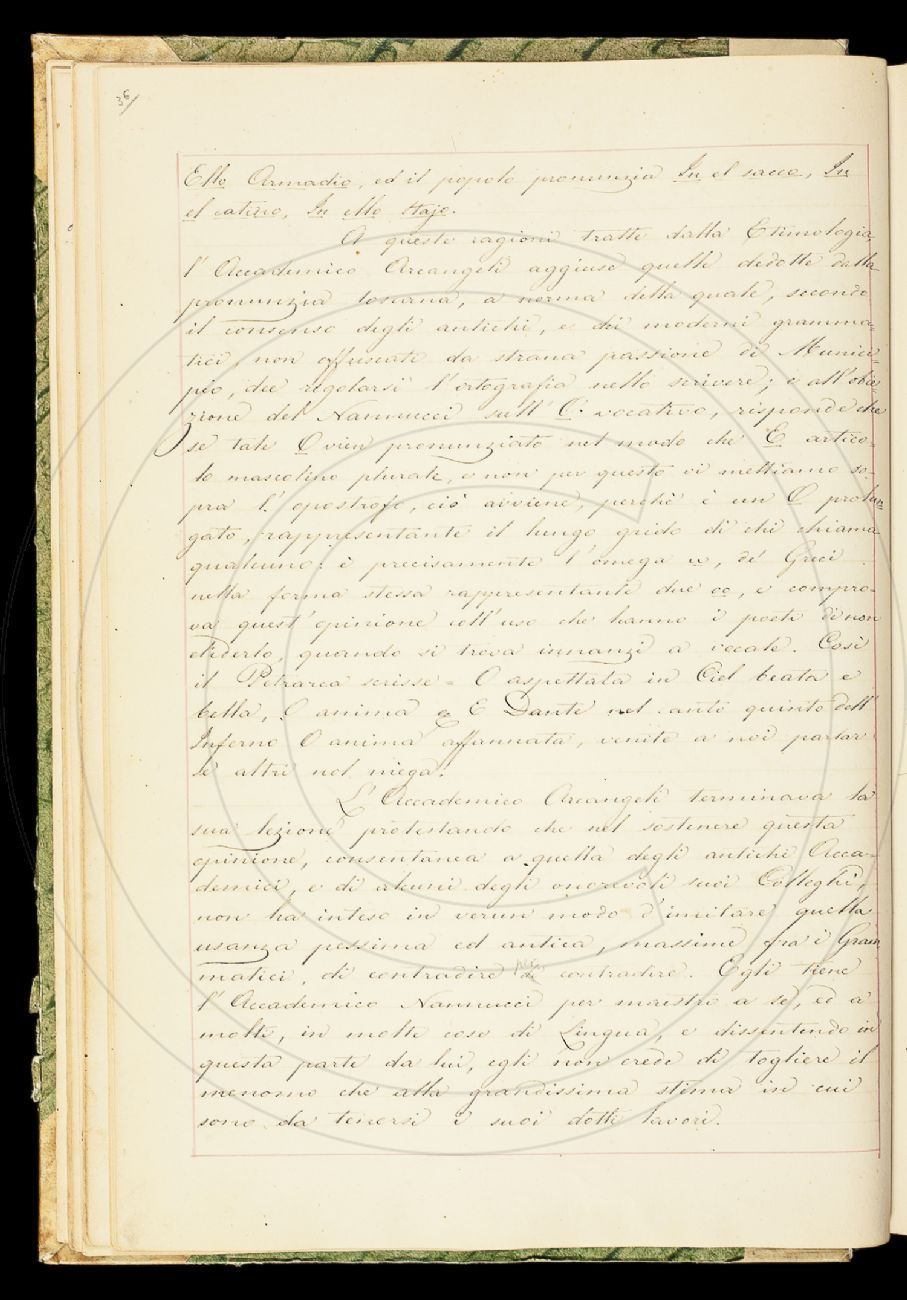 36/
Ello Armadio, ed il popolo pronunzia In el sacco, In
el catino, In ello stajo.
A queste ragioni tratte dalla Etimologia
l' Accademico Arcangeli aggiuse quelle dedotte dalla
pronunzia toscana, a norma della quale, secondo
il consenso degli antichi, e dei moderni gramma=
tici, non offuscati da strana passione di Munici=
pio, dee regolarsi l'ortografia nello scrivere; e all'obie=
zione del Nannucci sull' O vocativo, risponde che
se tale O vien pronunziato nel modo che E artico=
lo mascolino plurale, e non per questo vi mettiamo so=
pra l' apostrofo, ciò avviene, perchè è un O prolun
gato, rappresentante il lungo grido di chi chiama
qualcuno: è precisamente l'omega ω, de' Greci
nella forma stessa rappresentante due oo, e compro=
va quest' opinione coll' uso che hanno i poeti di non
eliderlo, quando si trova innanzi a vocale. Così
il Petrarca scrisse = O aspettata in Ciel beata e
bella, O anima e E Dante nel canto quinto dell'
Inferno O anime affannate, venite a noi parlar
s' altri nol niega.
L' Accademico Arcangeli terminava la
sua lezione protestando che nel sostenere questa
opinione, consentanea a quella degli antichi Acca=
demici, e di alcuni degli onorevoli suoi Colleghi,
non ha inteso in verun modo d'imitare quella
usanza pessima ed antica, massime fra i Gram
matici, di contradire per contradire. Egli tiene
l' Accademico Nannucci per maestro a se, ed a
molti, in molte cose di Lingua, e dissentendo in
questa parte da lui, egli non crede di togliere il
menomo che alla grandissima stima in cui
sono da tenersi i suoi dotti lavori.